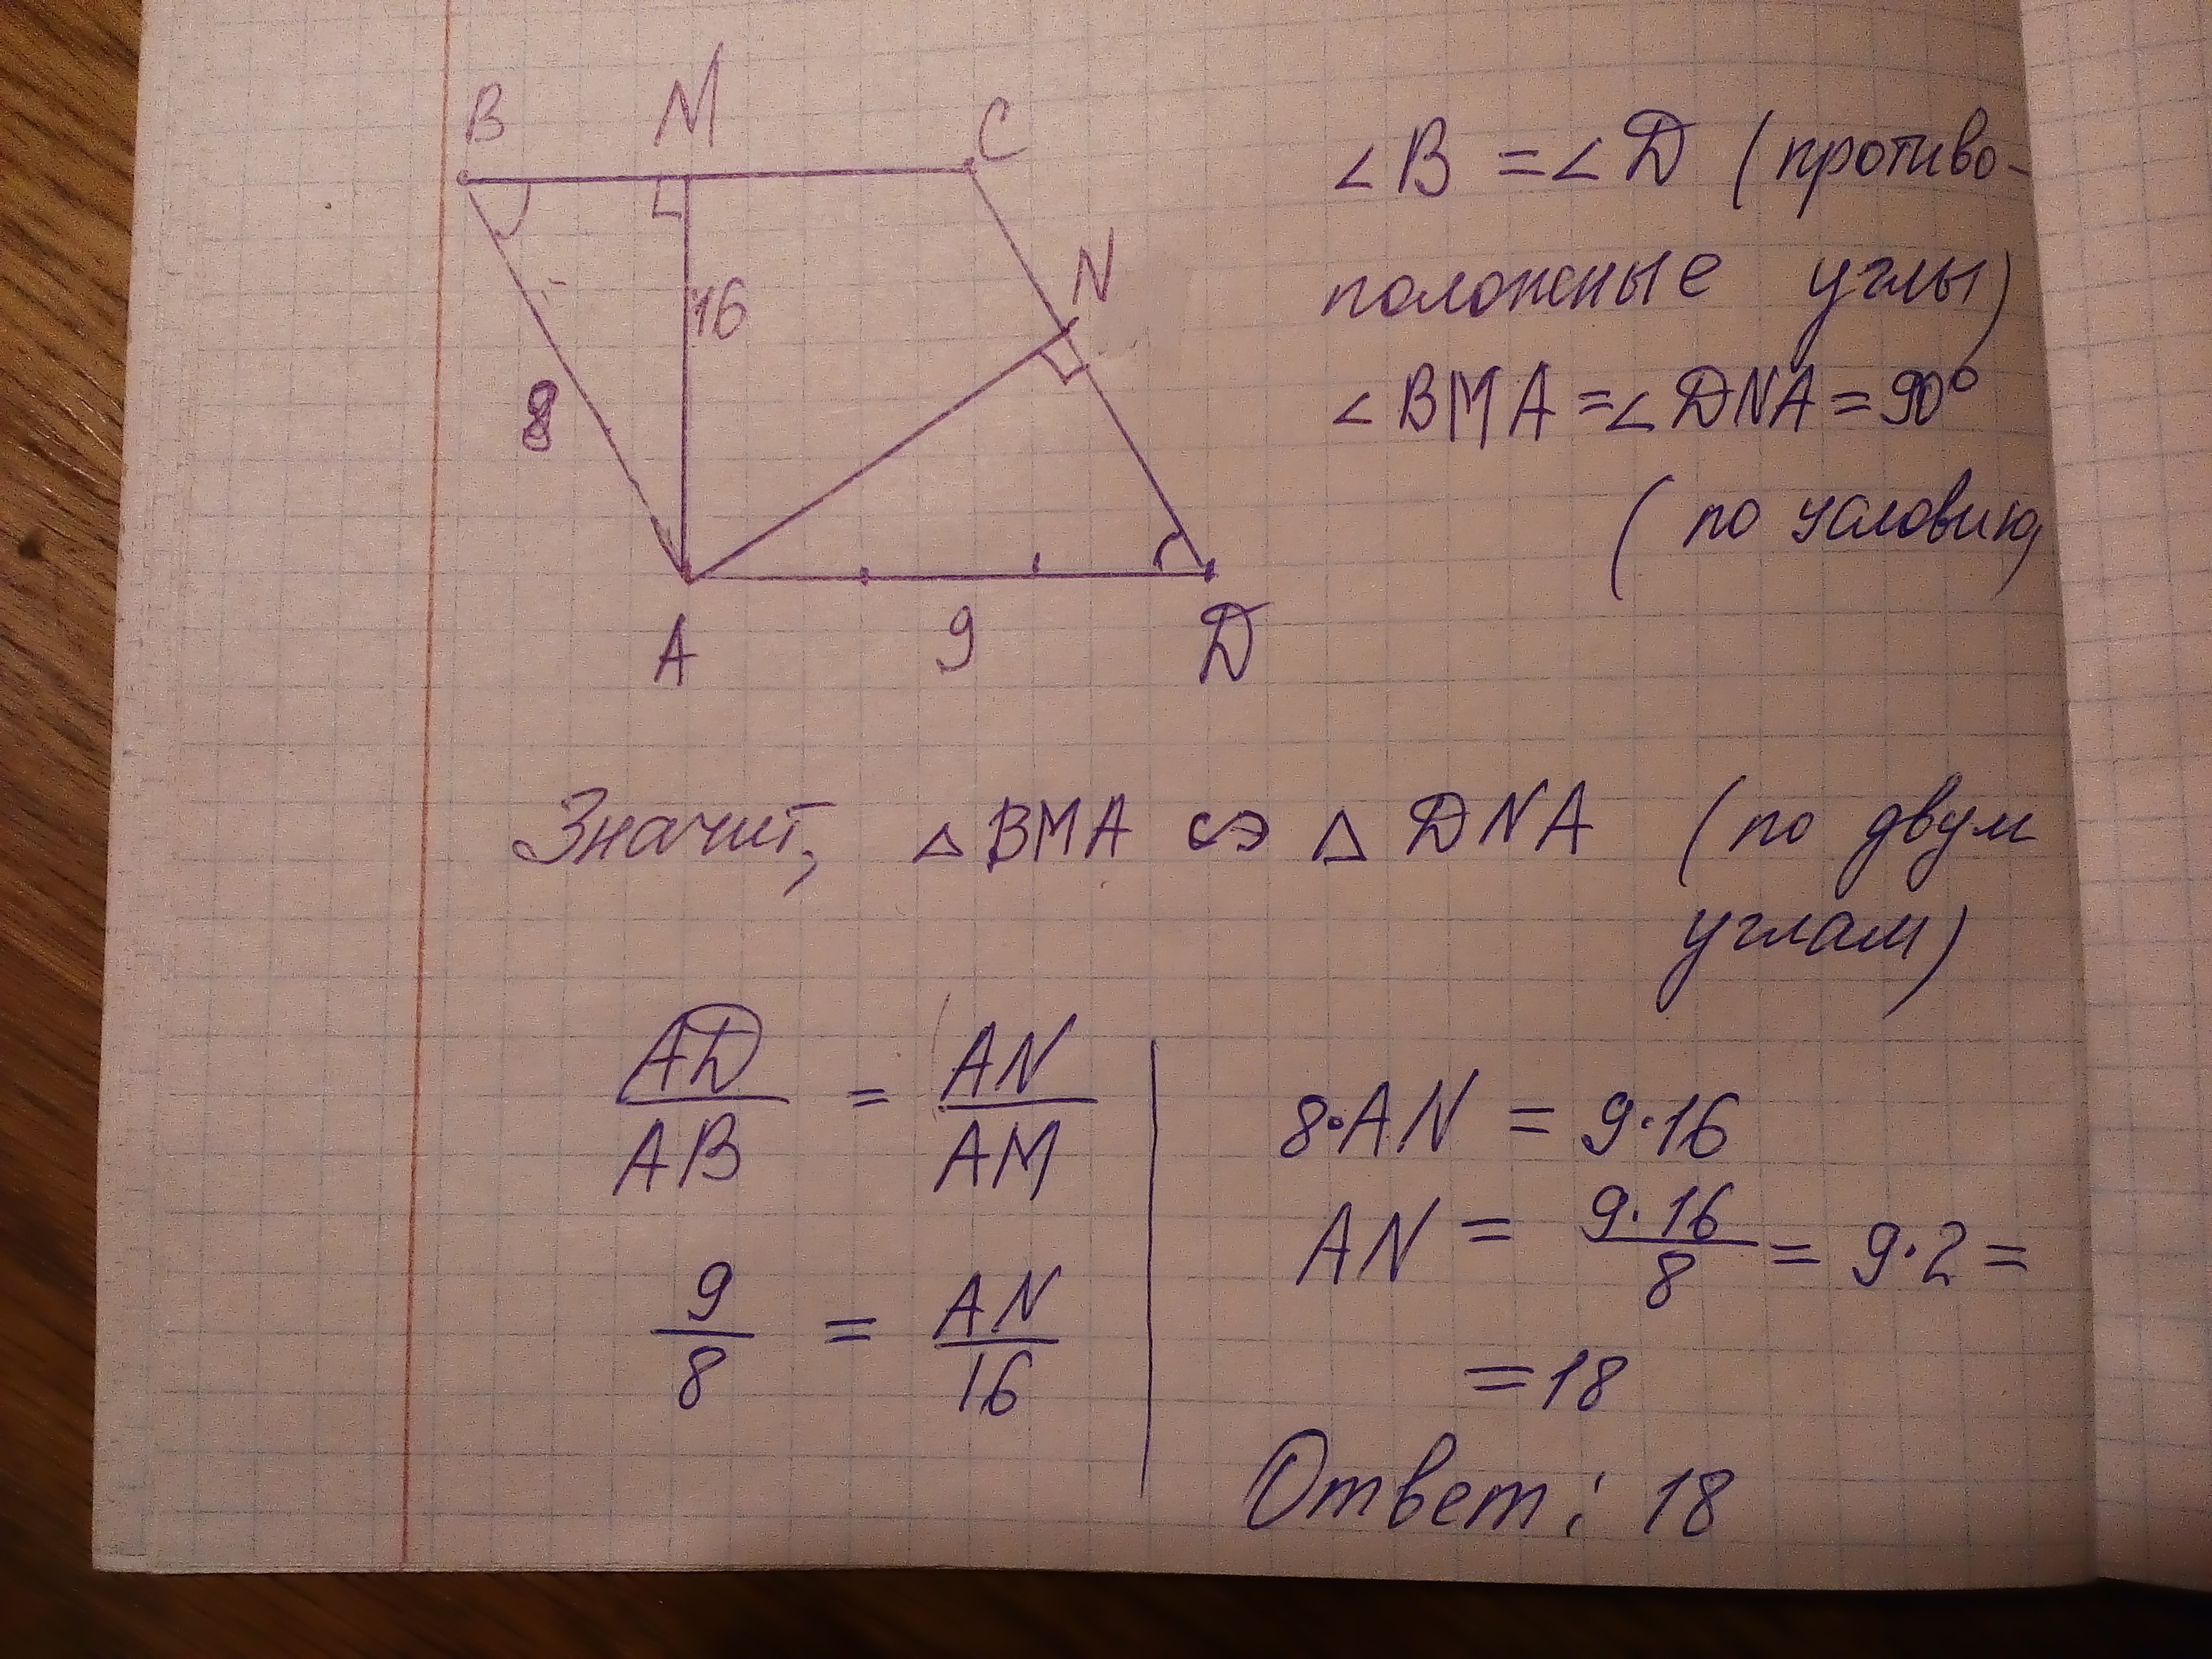 B M C
N
16
8
A 9 D
∠B = ∠D (противо-
положные углы)
∠BMA = ∠DNA = 90°
(по условию)
Значит, △BMA ∽ △DNA (по двум
углам)
AD/AB = AN/AM
9/8 = AN/16
8·AN = 9·16
AN = 9·16/8 = 9·2 =
= 18
Ответ: 18